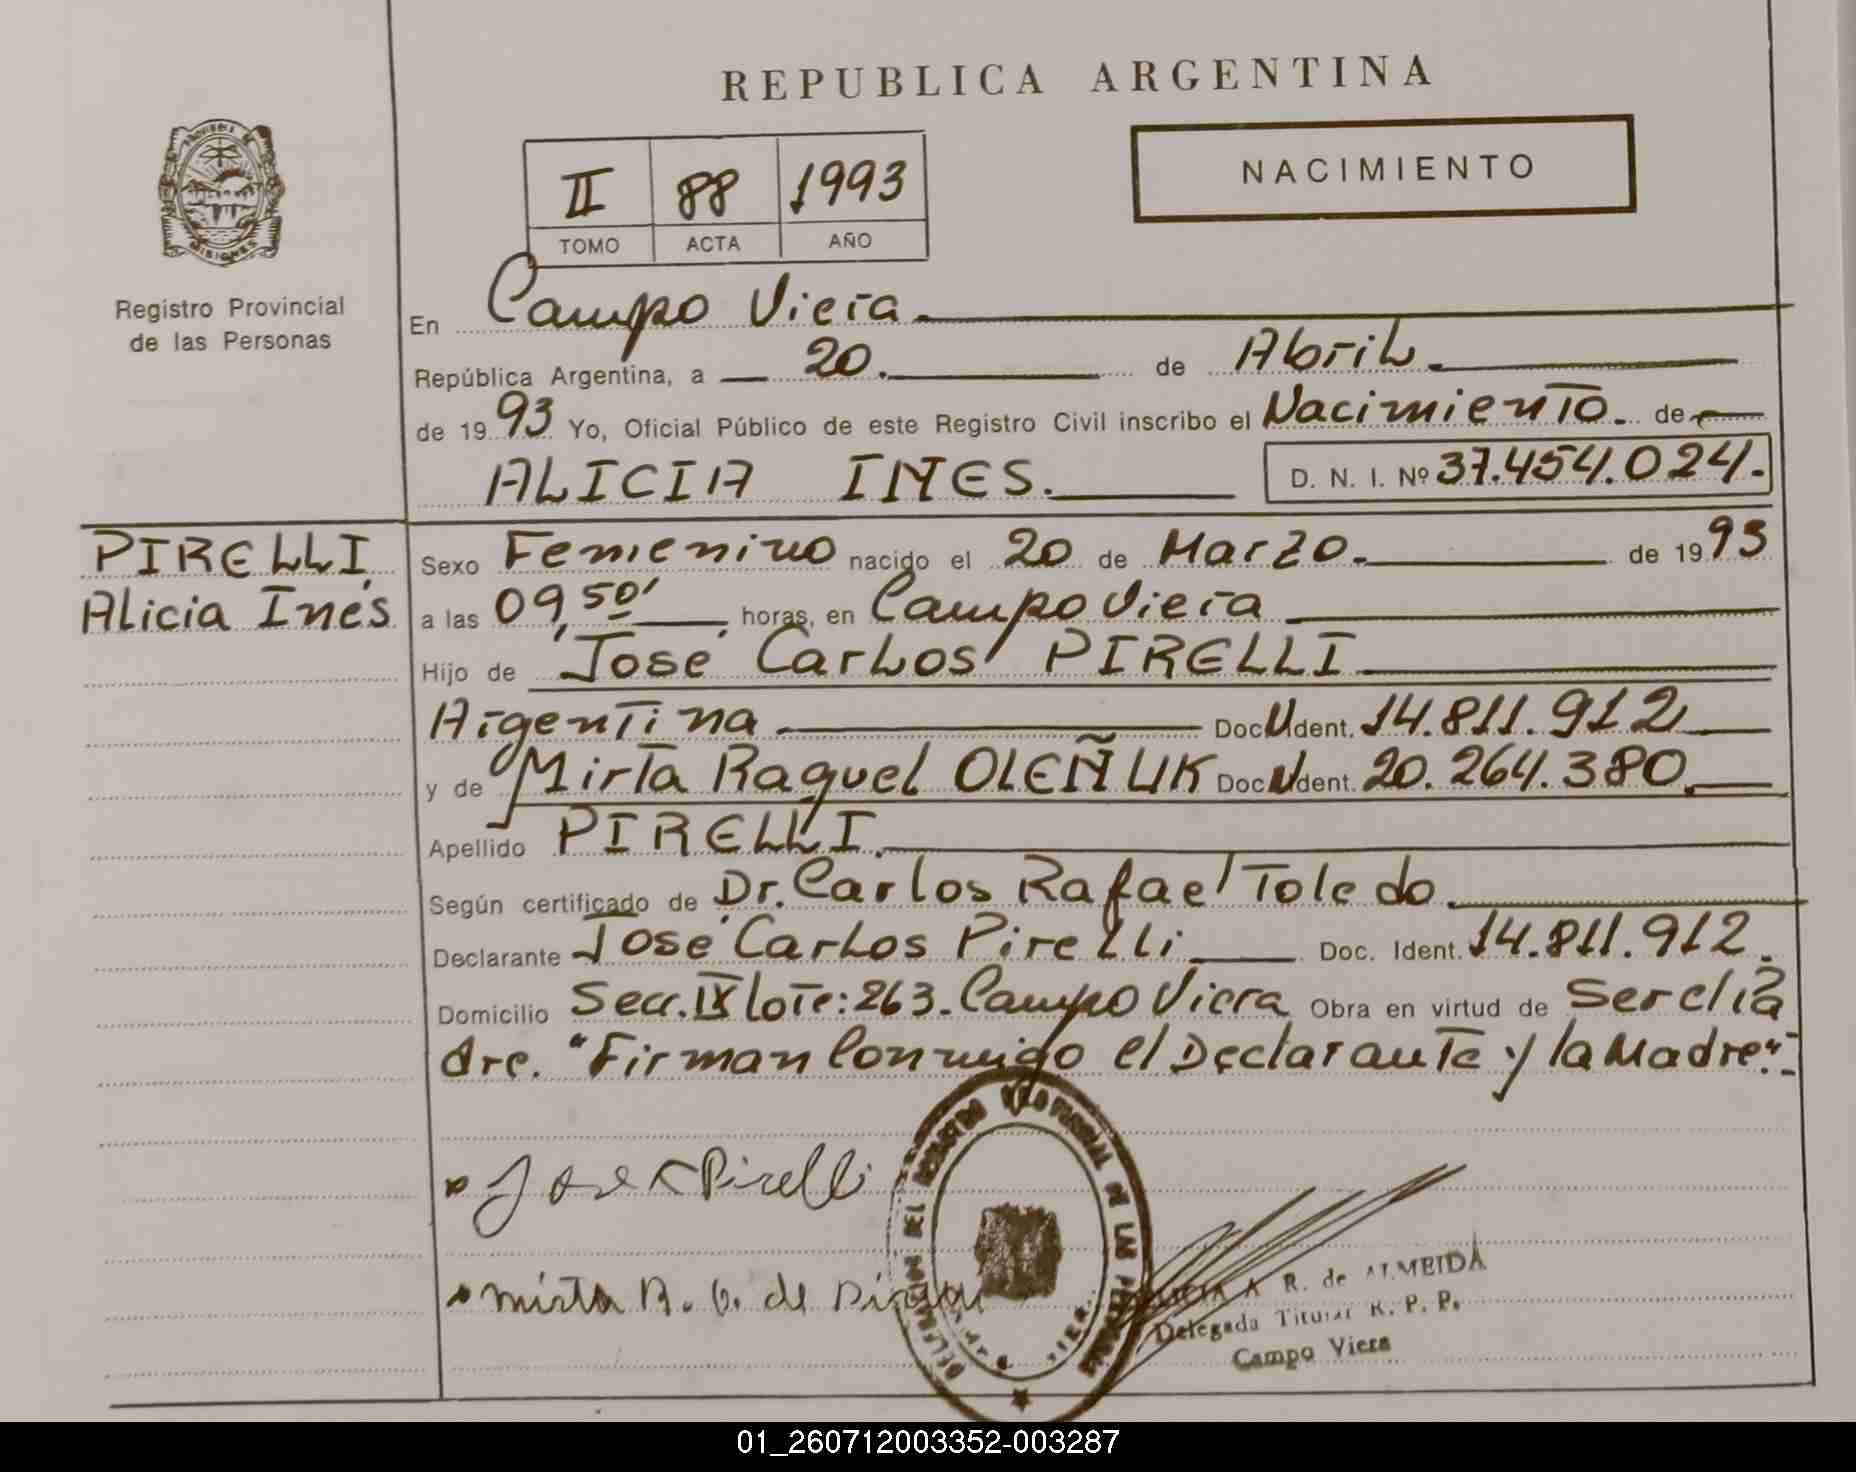 REPUBLICA ARGENTINA
NACIMIENTO
II 88 1993
TOMO ACTA AÑO
PROVINCIA DE
MISIONES
Registro Provincial
de las Personas
En Campo Viera.
República Argentina, a 20. de Abril.
de 1993 Yo, Oficial Público de este Registro Civil inscribo el Nacimiento. de
ALICIA INES. D. N. I. Nº 37.454.024.
PIRELLI
Alicia Inés
Sexo Femenino nacido el 20 de Marzo. de 1993
a las 09,50' horas, en Campo Viera
Hijo de José Carlos PIRELLI
Argentina Doc. U Ident. 14.811.912
y de Mirta Raquel OLEÑUK Doc. U Ident. 20.264.380.
Apellido PIRELLI.
Según certificado de Dr. Carlos Rafael Toledo.
Declarante José Carlos Pirelli Doc. Ident. 14.811.912.
Domicilio Secc. IX Lote: 263. Campo Viera Obra en virtud de Ser el Pa
dre. "Firman Conmigo el Declarante y la Madre".-
José C Pirelli
Mirta R. O. de
DELEGACION DEL REGISTRO PROVINCIAL DE LAS PERSONAS
A R. de ALMEIDA
Delegada Titular R. P. P.
Campo Viera
01_260712003352-003287